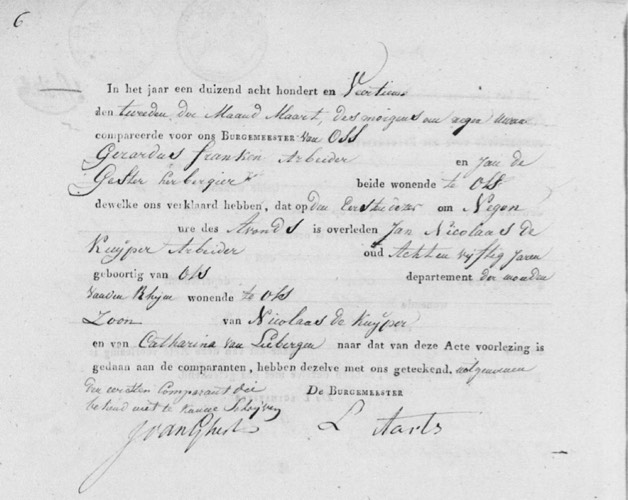 6
In het jaar een duizend acht hondert en Veertiene
den tweeden der Maand Maart, des morgens om negen uuren
compareerde voor ons BURGEMEESTER van Oss
Gerardus franken Arbeider en Jan de
Gester herbergier beide wonende te Oss
dewelke ons verklaard hebben, dat op den Eersten dezer om Negen
ure des Avonds is overleden Jan Nicolaas de
Kuijper Arbeider oud Acht en vijftig Jaren
geboortig van Oss departement der monden
van den Rhijn wonende te Oss
Zoon van Nicolaas de Kuijper
en van Catharina van Liebergen naar dat van deze Acte voorlezing is
gedaan aan de comparanten, hebben dezelve met ons geteekend, uitgenomen
den eersten Comparant die De BURGEMEESTER
bekend niet te kunne Schrijven
L Aarts